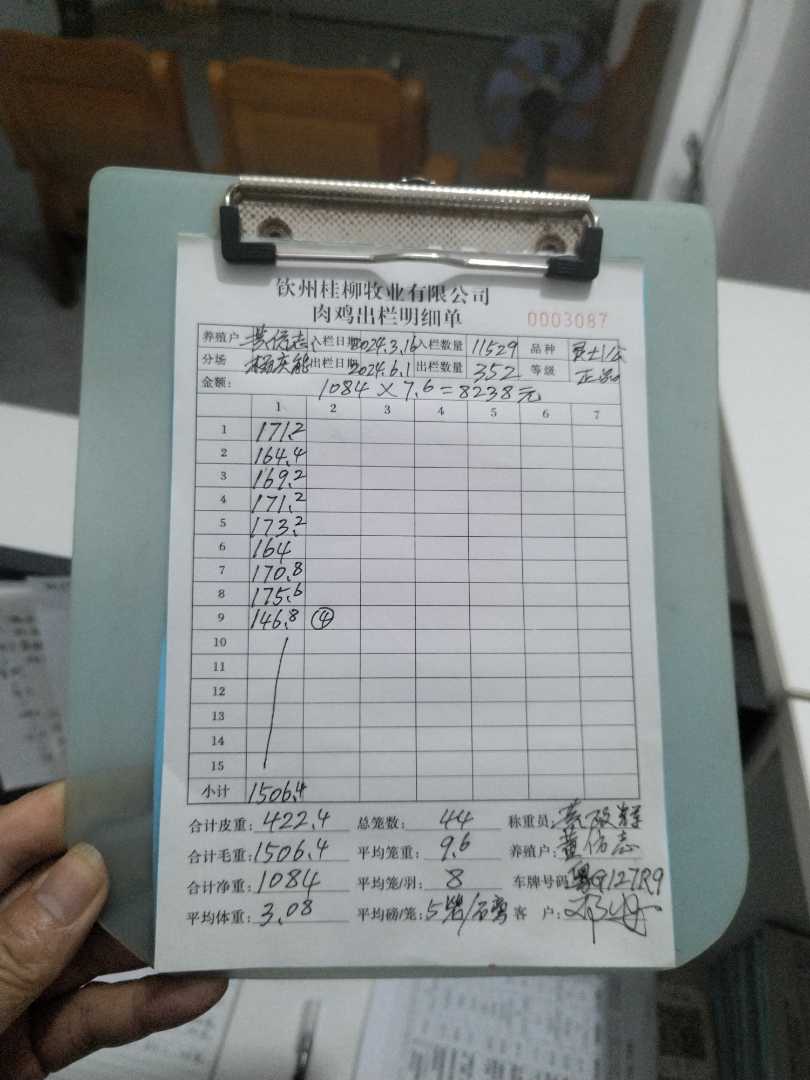 钦州桂柳牧业有限公司
肉鸡出栏明细单 0003087
养殖户 黄伤志 入栏日期 2024.3.16 入栏数量 11529 品种
分场 出栏日期 2024.6.1 出栏数量 352 等级
金额： 1084 × 7.6 = 8238元
1 2 3 4 5 6 7
1 171.2
2 164.4
3 169.2
4 171.2
5 173.2
6 164
7 170.8
8 175.6
9 146.8 ④
10
11
12
13
14
15
小计 1506.4
合计皮重： 422.4 总笼数： 44 称重员：
合计毛重： 1506.4 平均笼重： 9.6 养殖户： 黄伤志
合计净重： 1084 平均笼/羽： 8 车牌号码 G127R9
平均体重： 3.08 平均磅/笼： 5 客 户：